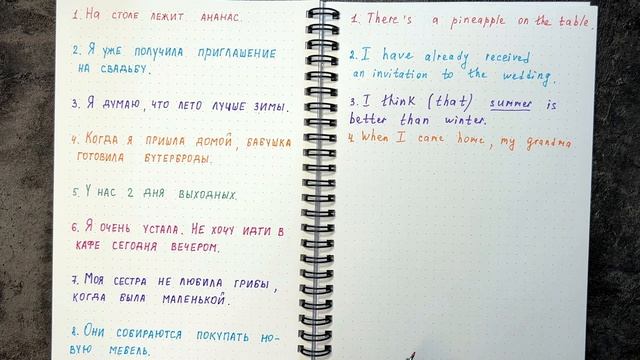 1. На столе лежит ананас.
2. Я уже получила приглашение
на свадьбу.
3. Я думаю, что лето лучше зимы.
4. Когда я пришла домой, бабушка
готовила бутерброды.
5. У нас 2 дня выходных.
6. Я очень устала. Не хочу идти в
кафе сегодня вечером.
7. Моя сестра не любила грибы,
когда была маленькой.
8. Они собираются покупать но-
вую мебель.
1. There's a pineapple on the table.
2. I have already received
an invitation to the wedding.
3. I think (that) summer is
better than winter.
4. When I came home, my grandma